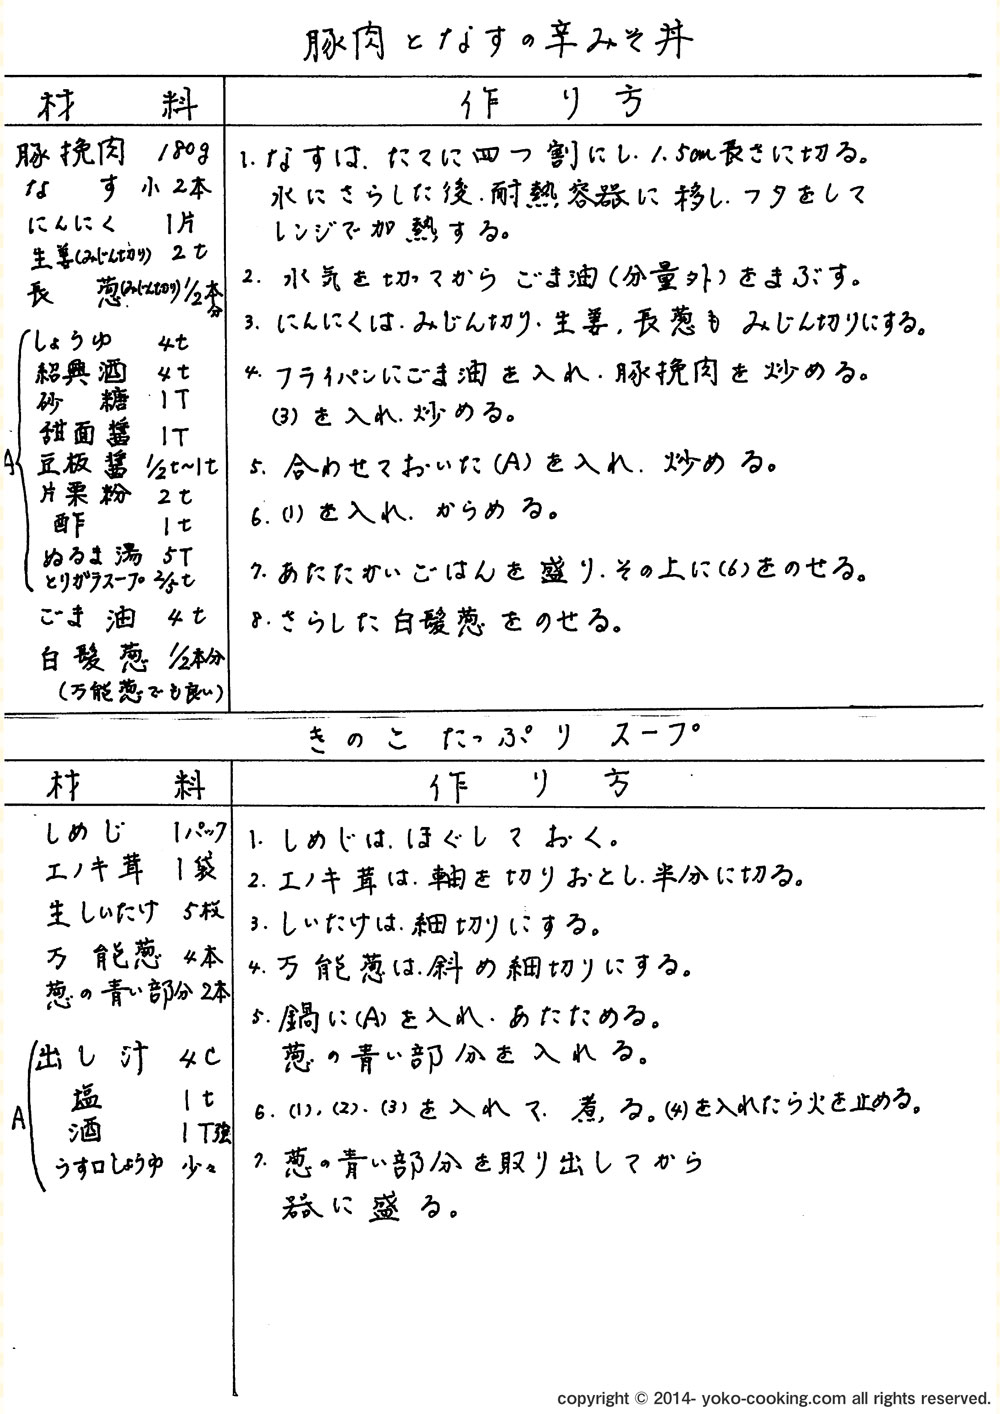 豚肉となすの辛みそ丼
材料
作り方
豚挽肉 180g
なす 小2本
にんにく 1片
生姜(みじん切り) 2t
長葱(みじん切り) 1/2本分
A
しょうゆ 4t
紹興酒 4t
砂糖 1T
甜面醤 1T
豆板醤 1/2t~1t
片栗粉 2t
酢 1t
ぬるま湯 5T
とりガラスープ 2/5t
ごま油 4t
白髪葱 1/2本分
(万能葱でも良い)
1. なすは、たてに四つ割にし、1.5cm長さに切る。
水にさらした後、耐熱容器に移し、フタをして
レンジで加熱する。
2. 水気を切ってから ごま油(分量外)をまぶす。
3. にんにくは、みじん切り、生姜、長葱も みじん切りにする。
4. フライパンにごま油を入れ、豚挽肉を炒める。
(3)を入れ、炒める。
5. 合わせておいた(A)を入れ、炒める。
6. (1)を入れ、からめる。
7. あたたかいごはんを盛り、その上に(6)をのせる。
8. さらした白髪葱をのせる。
きのこたっぷりスープ
材料
作り方
しめじ 1パック
エノキ茸 1袋
生しいたけ 5枚
万能葱 4本
葱の青い部分 2本
A
出し汁 4C
塩 1t
酒 1T強
うす口しょうゆ 少々
1. しめじは、ほぐしておく。
2. エノキ茸は、軸を切りおとし、半分に切る。
3. しいたけは、細切りにする。
4. 万能葱は、斜め細切りにする。
5. 鍋に(A)を入れ、あたためる。
葱の青い部分を入れる。
6. (1)、(2)、(3)を入れて、煮る。(4)を入れたら火を止める。
7. 葱の青い部分を取り出してから
器に盛る。
copyright © 2014- yoko-cooking.com all rights reserved.